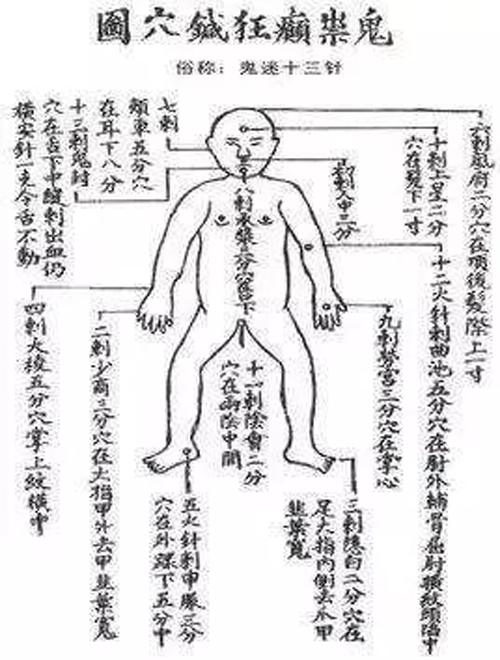 鬼祟癲狂鍼穴圖
俗称：鬼迷十三针
六刺風府二分穴在項後髮際上一寸
十刺上星二分
穴在髮下一寸
十二火針刺曲池五分穴在肘外輔骨屈肘橫紋頭陷中
九刺勞宮三分穴在掌心
刺人中三分
三刺隱白二分穴在
足大指內側去爪甲
韭葉寬
八刺承漿三分穴唇下
十一刺陰會二分
穴在兩陰中間
五火針刺申脈三分
穴在外踝下五分中
七刺
頰車五分穴
在耳下八分
十三刺鬼封
穴在舌下中縫刺出血仍
橫安針一支令舌不動
二刺少商三分穴在大指甲外去甲韭葉寬
四刺大稜五分穴掌上紋橫中